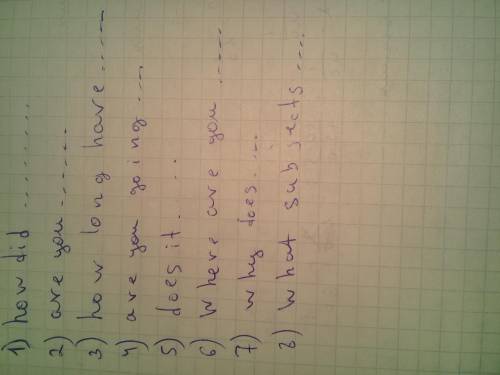 1) how did ..........
2) are you.......
3) how long have ......
4) are you going ....
5) does it.....
6) Where are you .....
7) why does.....
8) What subjects ....